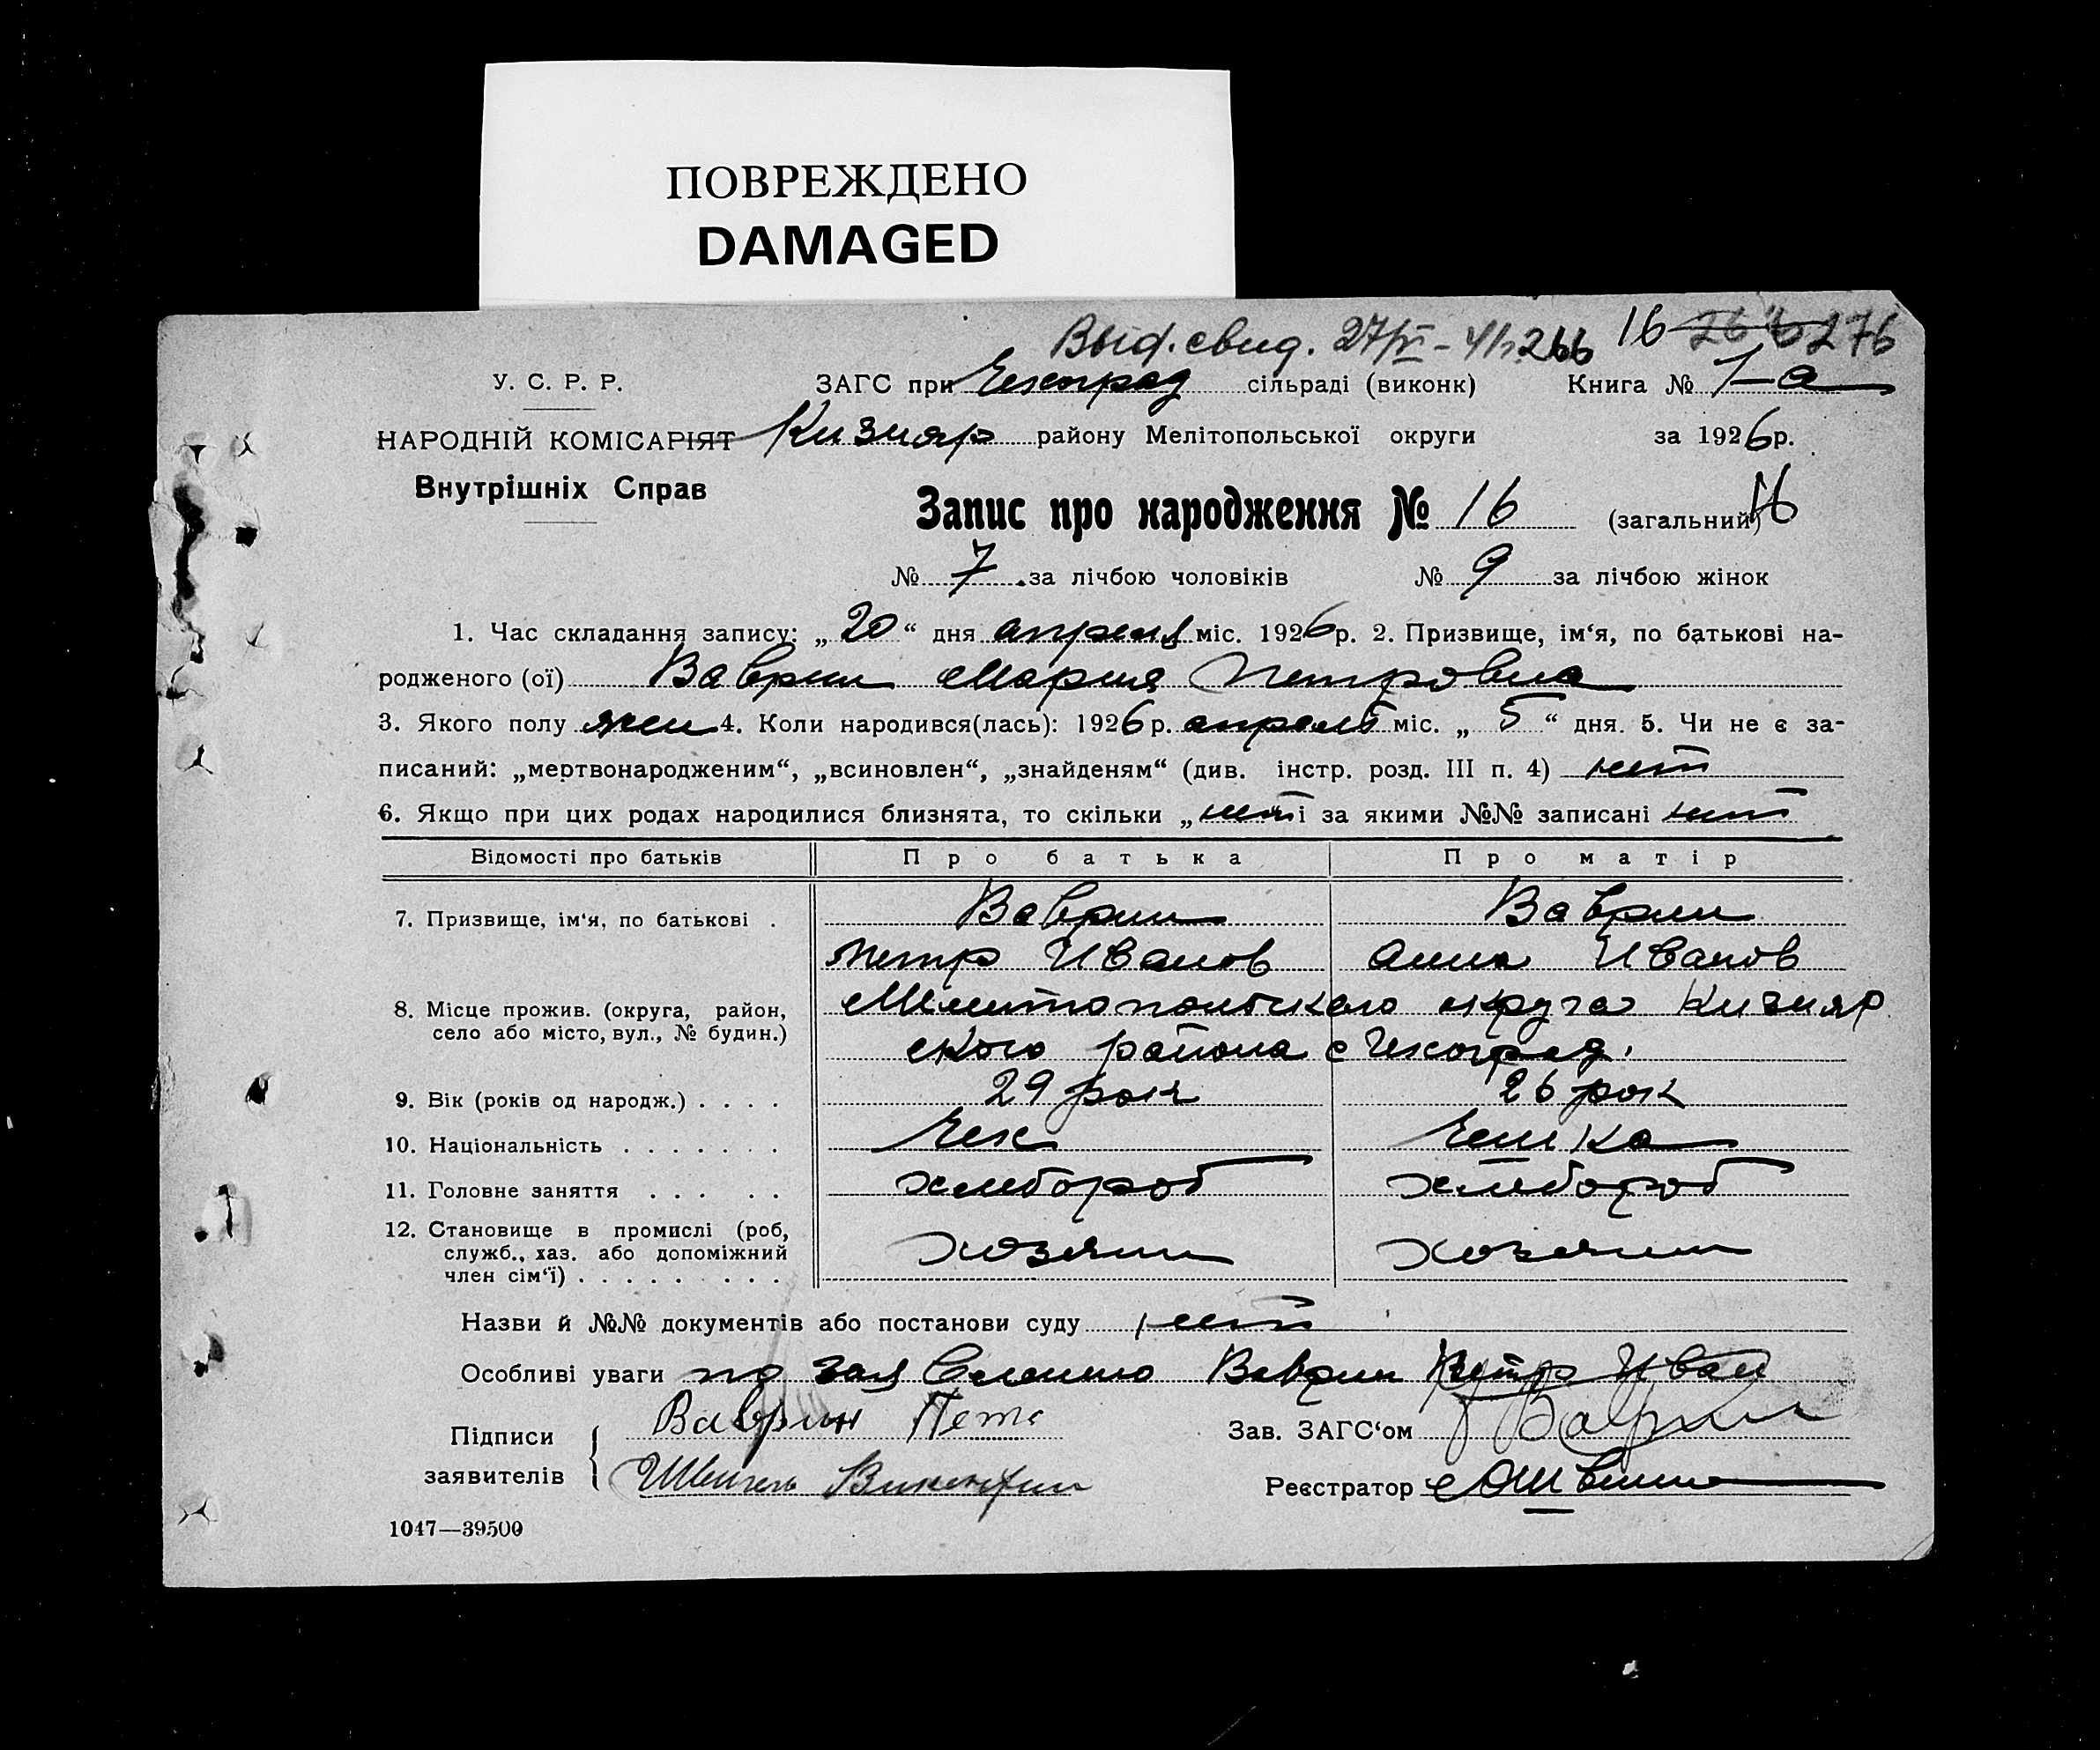 ПОВРЕЖДЕНО
DAMAGED
Выд. свид. 27/VI - 41г. 266 16 276
У. С. Р. Р. ЗАГС при Чехоград сільраді (виконк) Книга № 1-а
НАРОДНІЙ КОМІСАРІЯТ Кизияр району Мелітопольської округи за 1926р.
Внутрішніх Справ
Запис про народження № 16 (загальний) 16
№ 7 за лічбою чоловіків № 9 за лічбою жінок
1. Час складання запису: „20“ дня апреля міс. 1926р. 2. Призвище, ім‘я, по батькові на-
родженого (ої) Ваврин Мария Петровна
3. Якого полу жен 4. Коли народився(лась): 1926р. апреля міс. „5“ дня. 5. Чи не є за-
писаний: „мертвонародженим“, „всиновлен“, „знайденям“ (див. інстр. розд. III п. 4) нет
6. Якщо при цих родах народилися близнята, то скільки „нет і за якими №№ записані нет
Відомості про батьків Про батька Про матір
7. Призвище, ім‘я, по батькові . Ваврин Ваврин
Петр Иванов Анна Иванов
8. Місце прожив. (округа, район, Мелитопольского округа Кизияр
село або місто, вул., № будин.) ского района с Чехоград.
9. Вік (років од народж.) . . . . 29 рок 26 рок
10. Національність . . . . . . . Чех Чешка
11. Головне заняття . . . . . хлебороб хлебороб
12. Становище в промислі (роб, хозяин хозяин
служб., хаз. або допоміжний
член сім‘ї) . . . . . . . .
Назви й №№ документів або постанови суду нет
Особливі уваги по заявлению Ваврин Петр Иван
Підписи Ваврин Петр Зав. ЗАГС‘ом Ваврин
заявителів Швигель Викентий Реєстратор
1047—39500